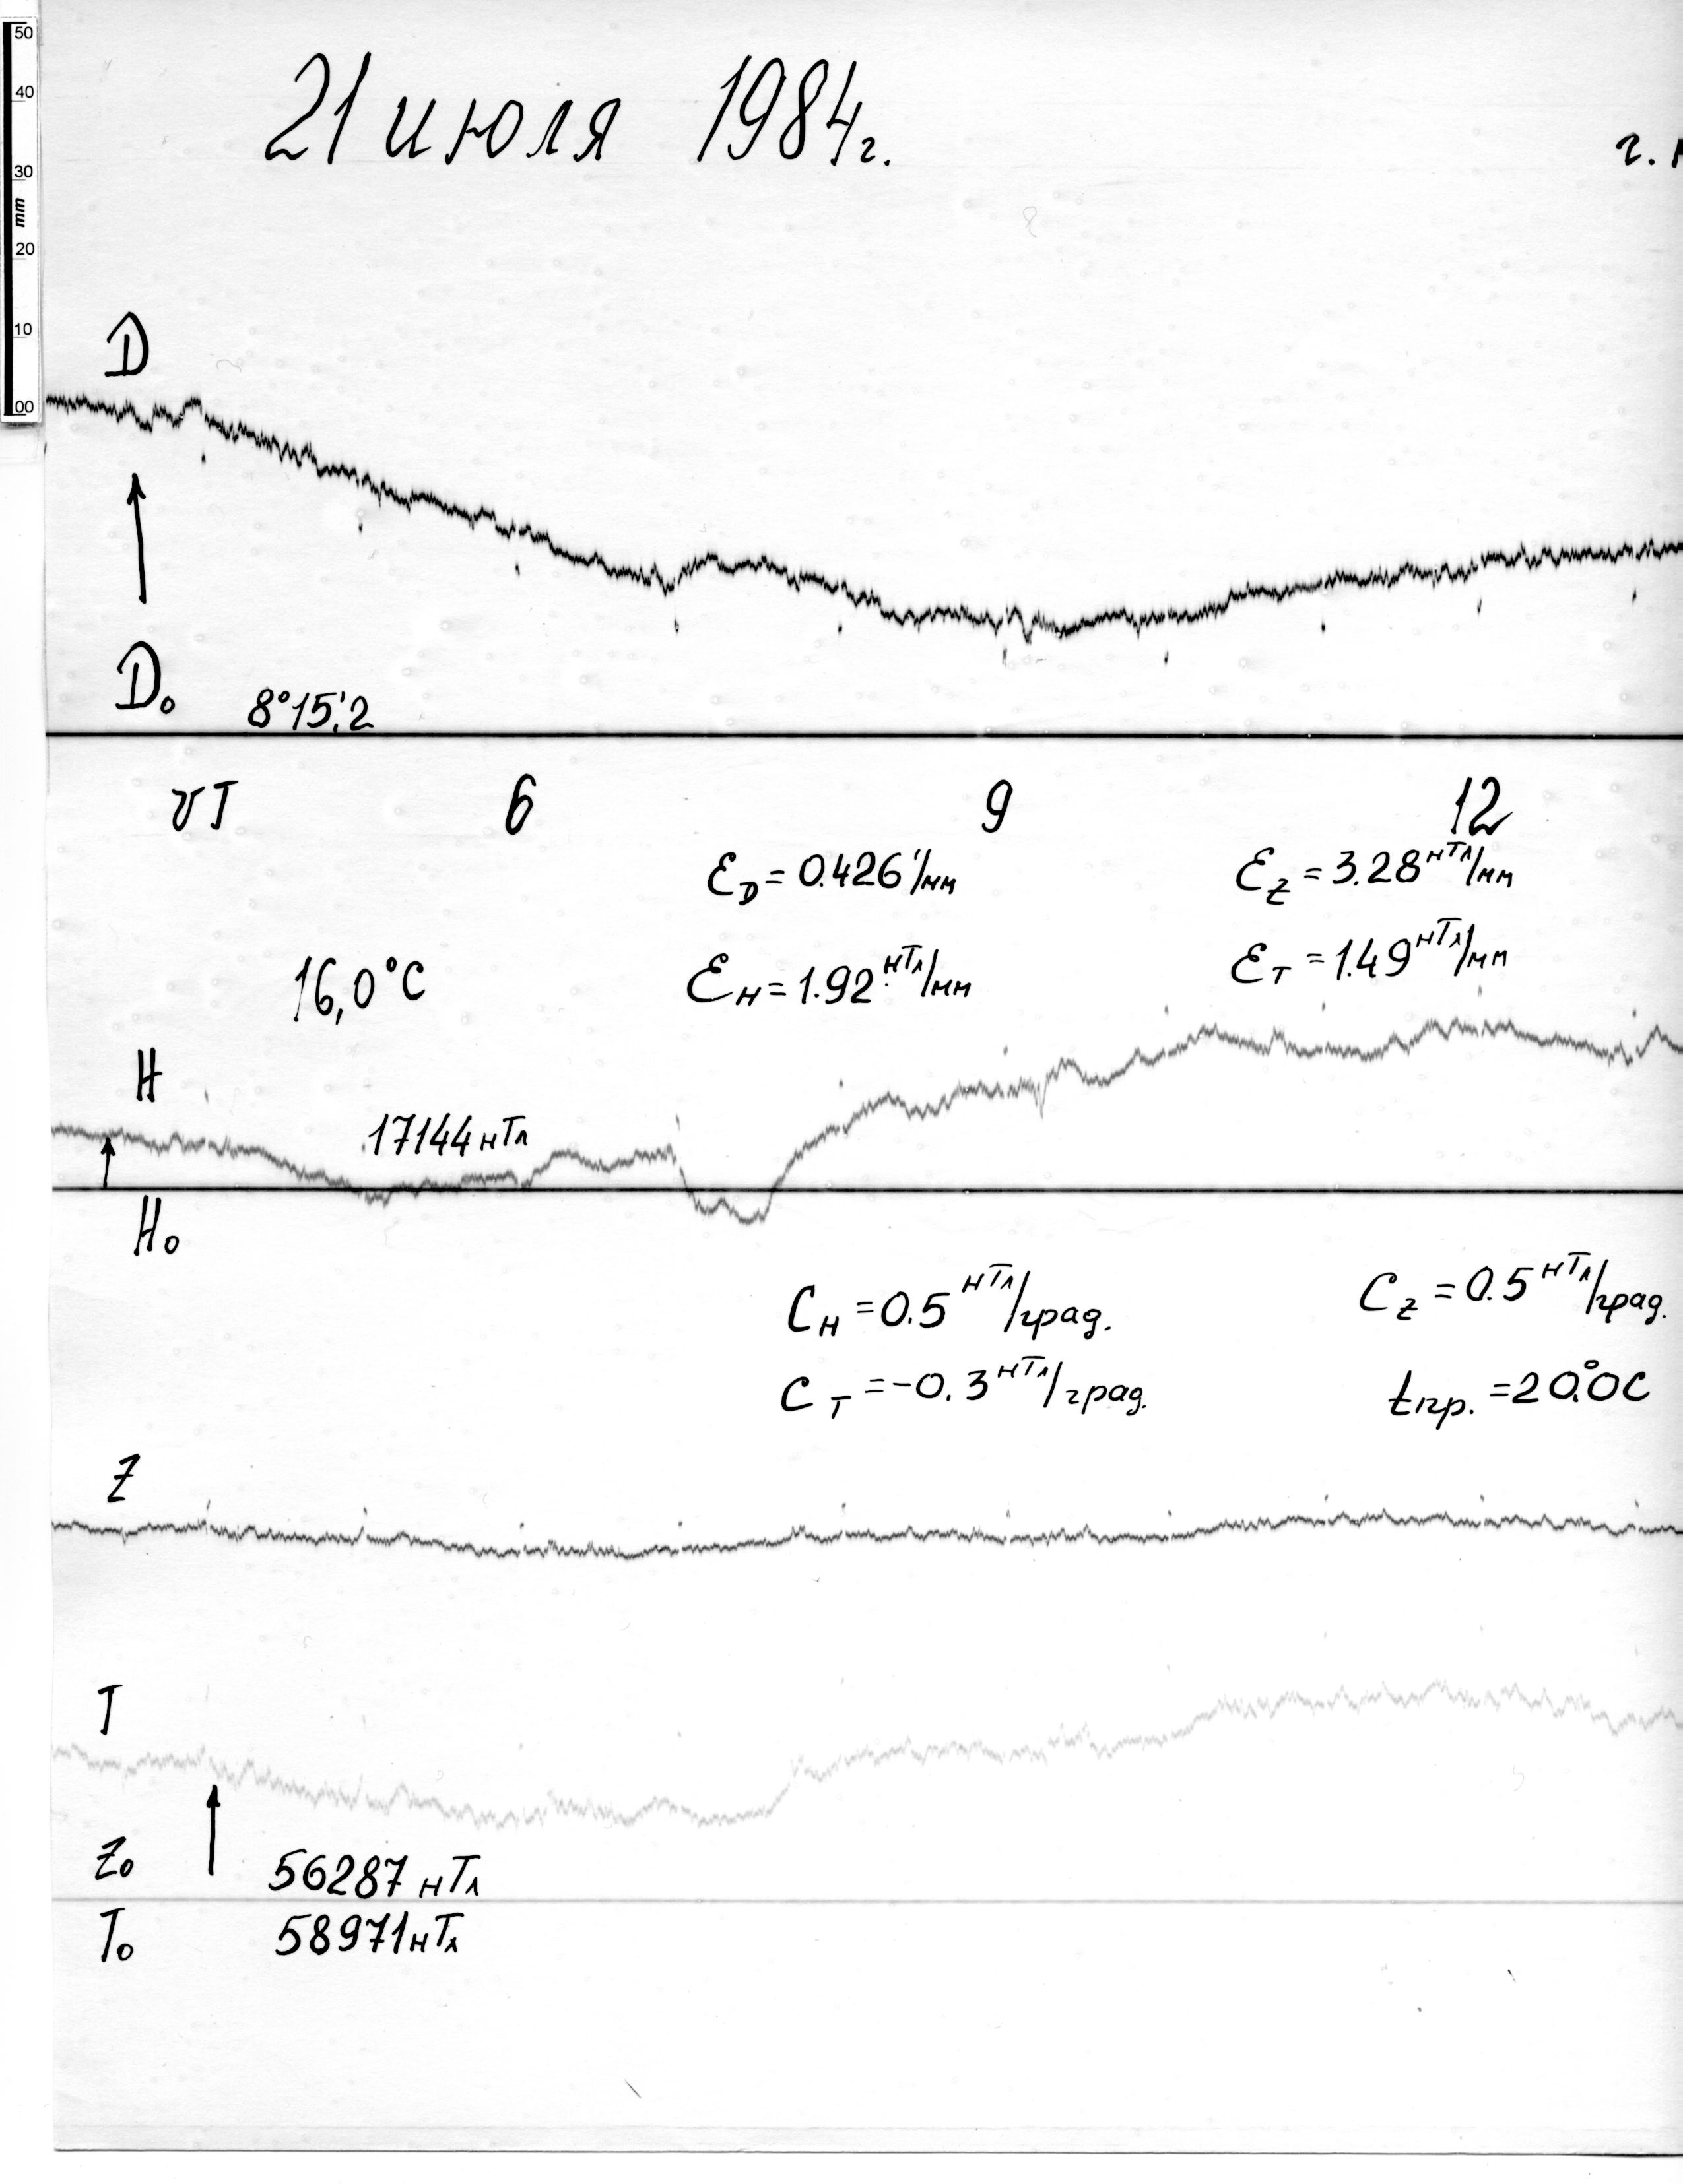 50
40
30
mm
20
10
00
21 июля 1984г.
г.
D
D₀ 8°15,'2
UT 6 9 12
ℰD = 0.426'/мм ℰZ = 3.28 нТл/мм
16,0°C ℰH = 1.92 нТл/мм ℰT = 1.49 нТл/мм
H
17144 нТл
H₀
CH = 0.5 нТл/град. CZ = 0.5 нТл/град.
CT = -0.3 нТл/град. tпр. = 20°.0C
Z
T
Z₀ 56287 нТл
T₀ 58971 нТл